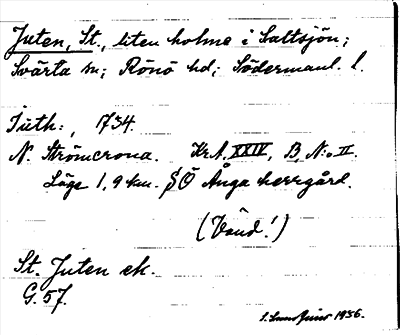 Juten, St., liten holme i Saltsjön;
Svärta sn; Rönö hd; Södermanl. l.
Juth:, 1734.
N. Strömcrona. KrA, XXIV, B, N:o II.
Läge 1,9 km. SÖ Ånga herrgård.
(Vänd!)
St. Juten ek.
G. 57.
1936.